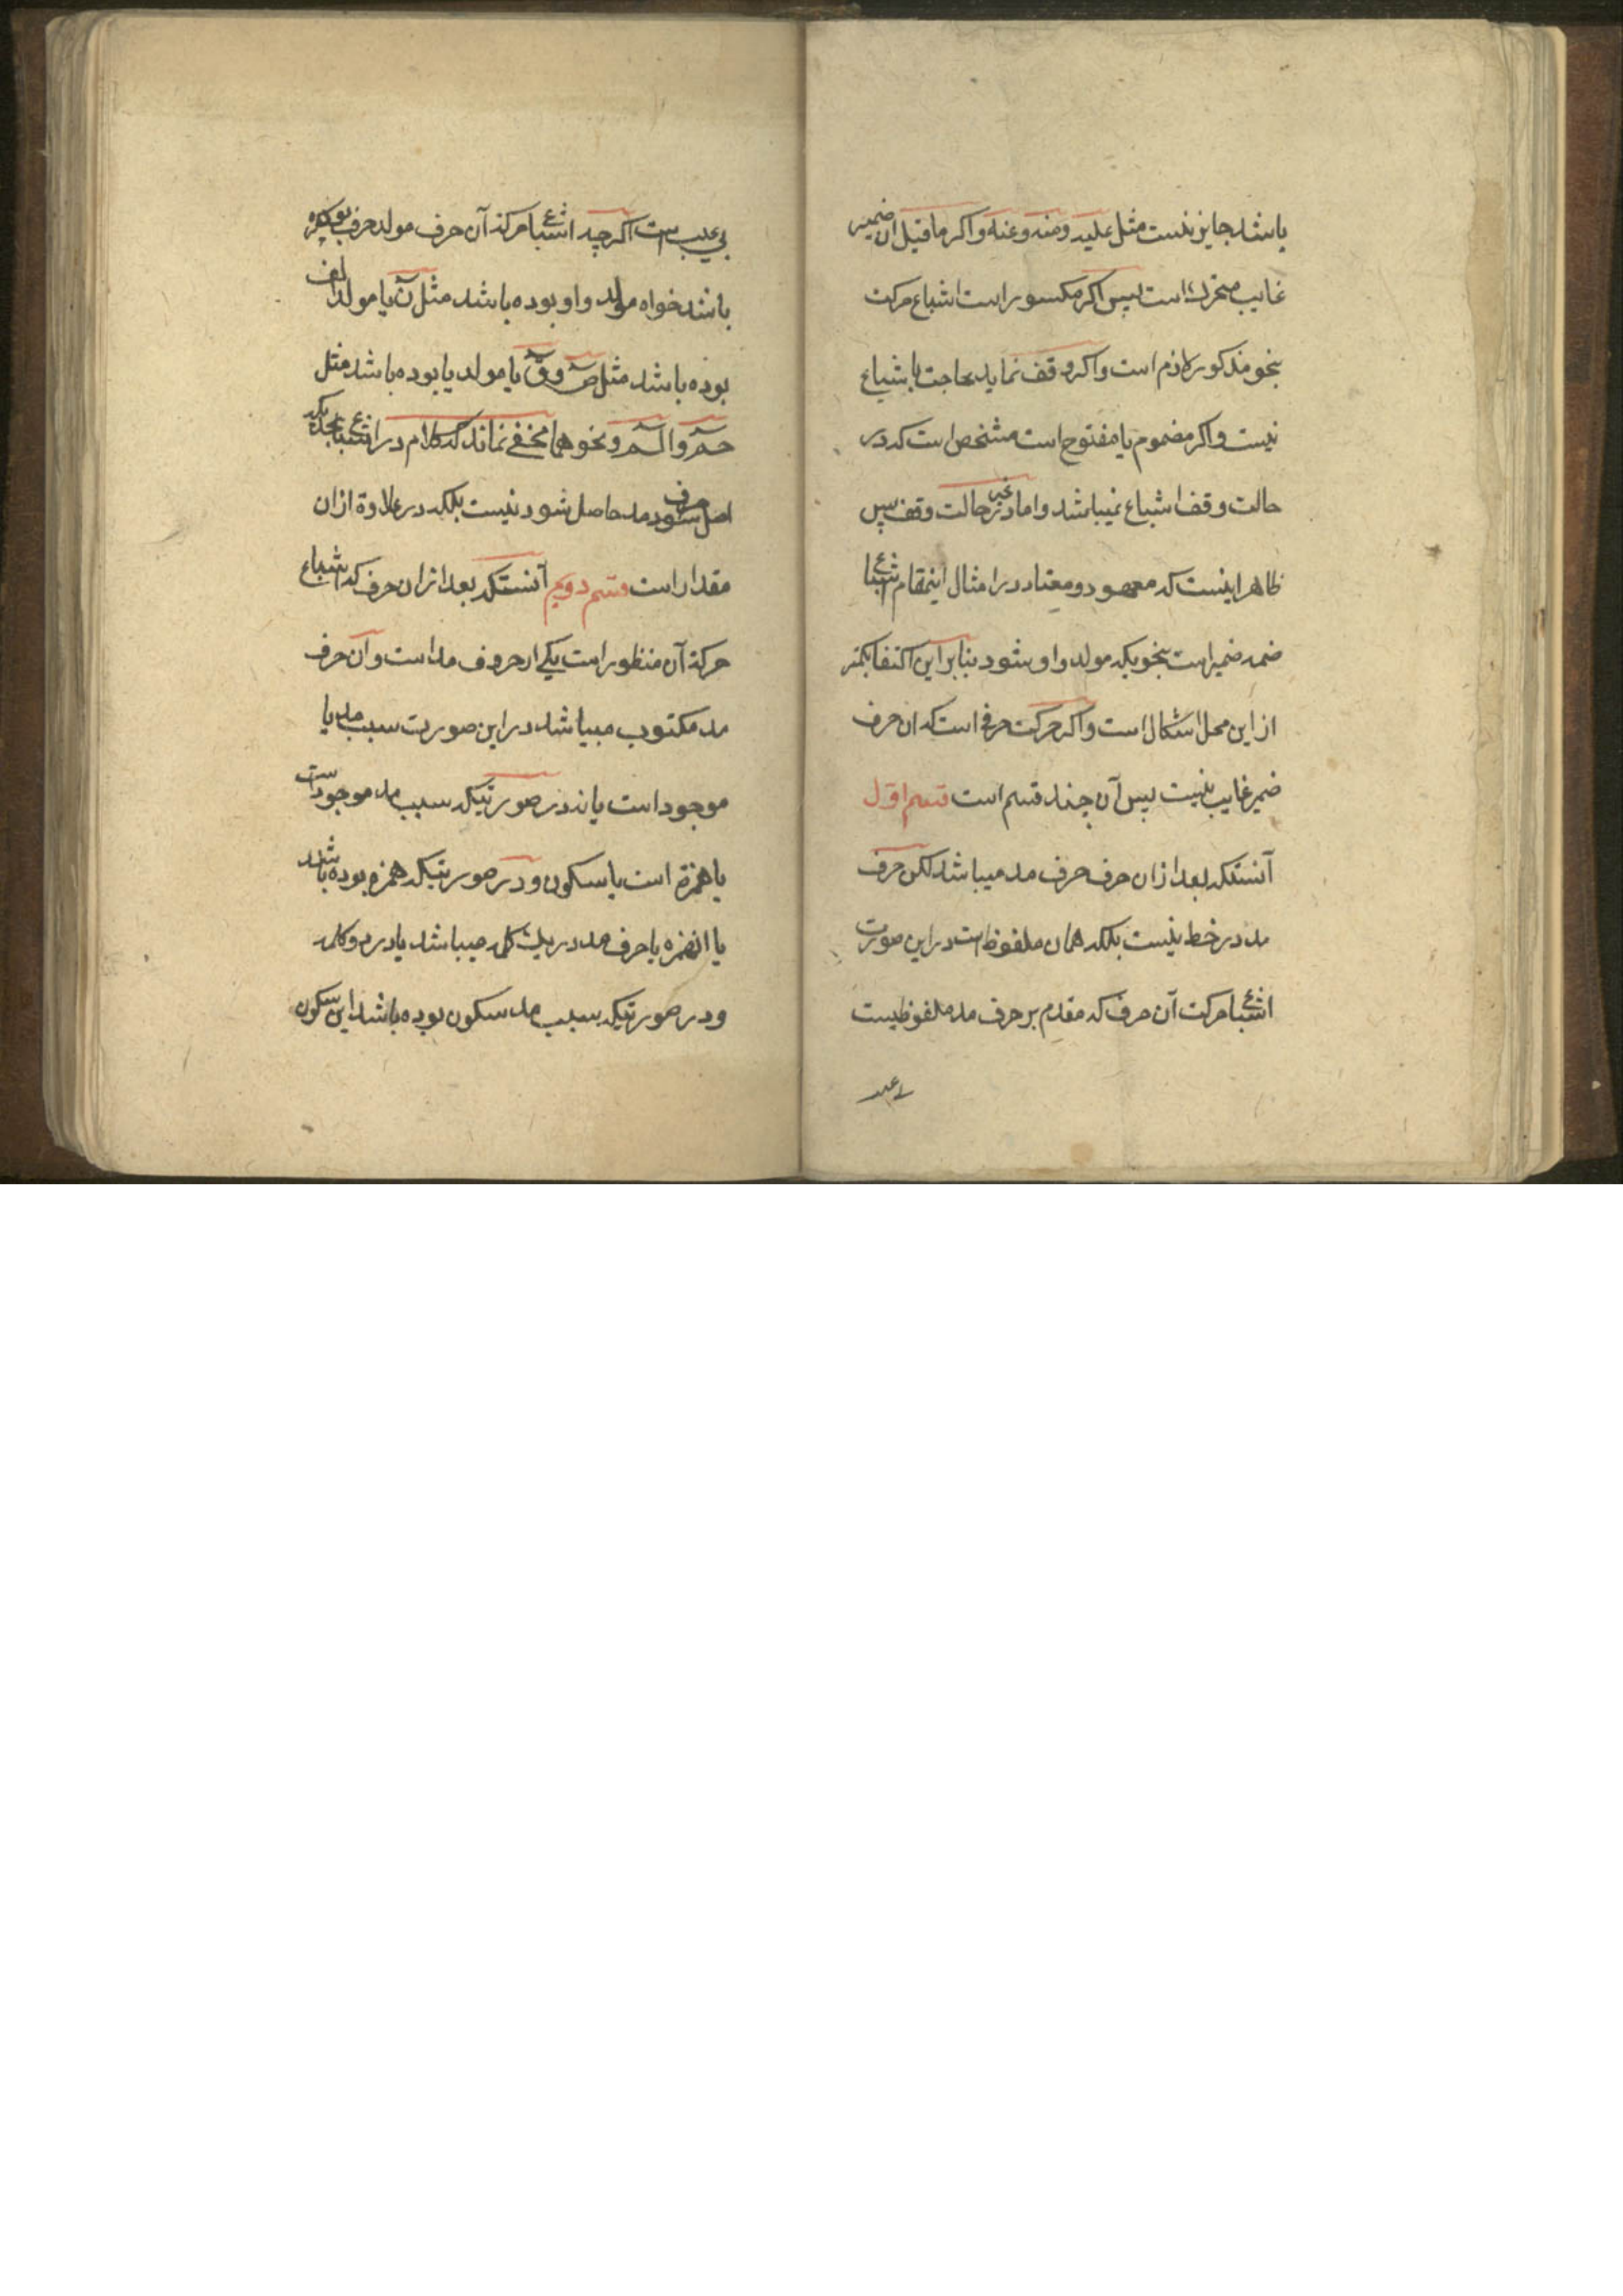 باشد جایز نیست مثل علیه و منه و عنه و اکر ماقبل ان ضمیر
غایب متحرک است پس اکر مکسور است اشباع حرکت
بنحو مذکور لازم است و اکر وقف نماید حاجت باشباع
نیست و اکر مضموم یا مفتوح است مشخص است که در
حالت وقف اشباع نمیباشد و اما در غیر حالت وقف پس
ظاهر اینست که معهود و معتاد در امثال اینمقام اشباع
ضمه ضمیر است بنحویکه مولد واو شود بنابراین اکتفا بکمتر
از این محل اشکال است و اکر حرکت حرفی است که ان حرف
ضمیر غایب نیست پس آن چند قسم است قسم اول
آنستکه بعد از ان حرف حرف مد میباشد لکن حرف
مد در خط نیست بلکه همان ملفوظ است در این صورت
اشباع حرکت آن حرف که مقدم بر حرف مد ملفوظیست
بی عیب است اکرچه اشباع حرکة آن حرف مولد حرف
باشد خواه مولد واو بوده باشد مثل ن یا مولد الف
بوده باشد مثل ص و ق یا مولد یا بوده باشد مثل
حم و الم و نحو هما مخفی نماند که کلام در اشباع بحدیکه
اصل حرف مد حاصل شود نیست بلکه در علاوة ازان
مقدار است قسم دویم آنستکه بعد از ان حرف که اشباع
حرکة آن منظور است یکی از حروف مد است و آن حرف
مد مکتوب میباشد در این صورت سبب مد یا
موجود است یا نه در صورتیکه سبب مد موجود است
یا همزة است یا سکون و در صورتیکه همزه بوده باشد
یا انهمزه با حرف مد در یک کلمه میباشد یا در دو کلمه
و در صورتیکه سبب مد سکون بوده باشد این سکون